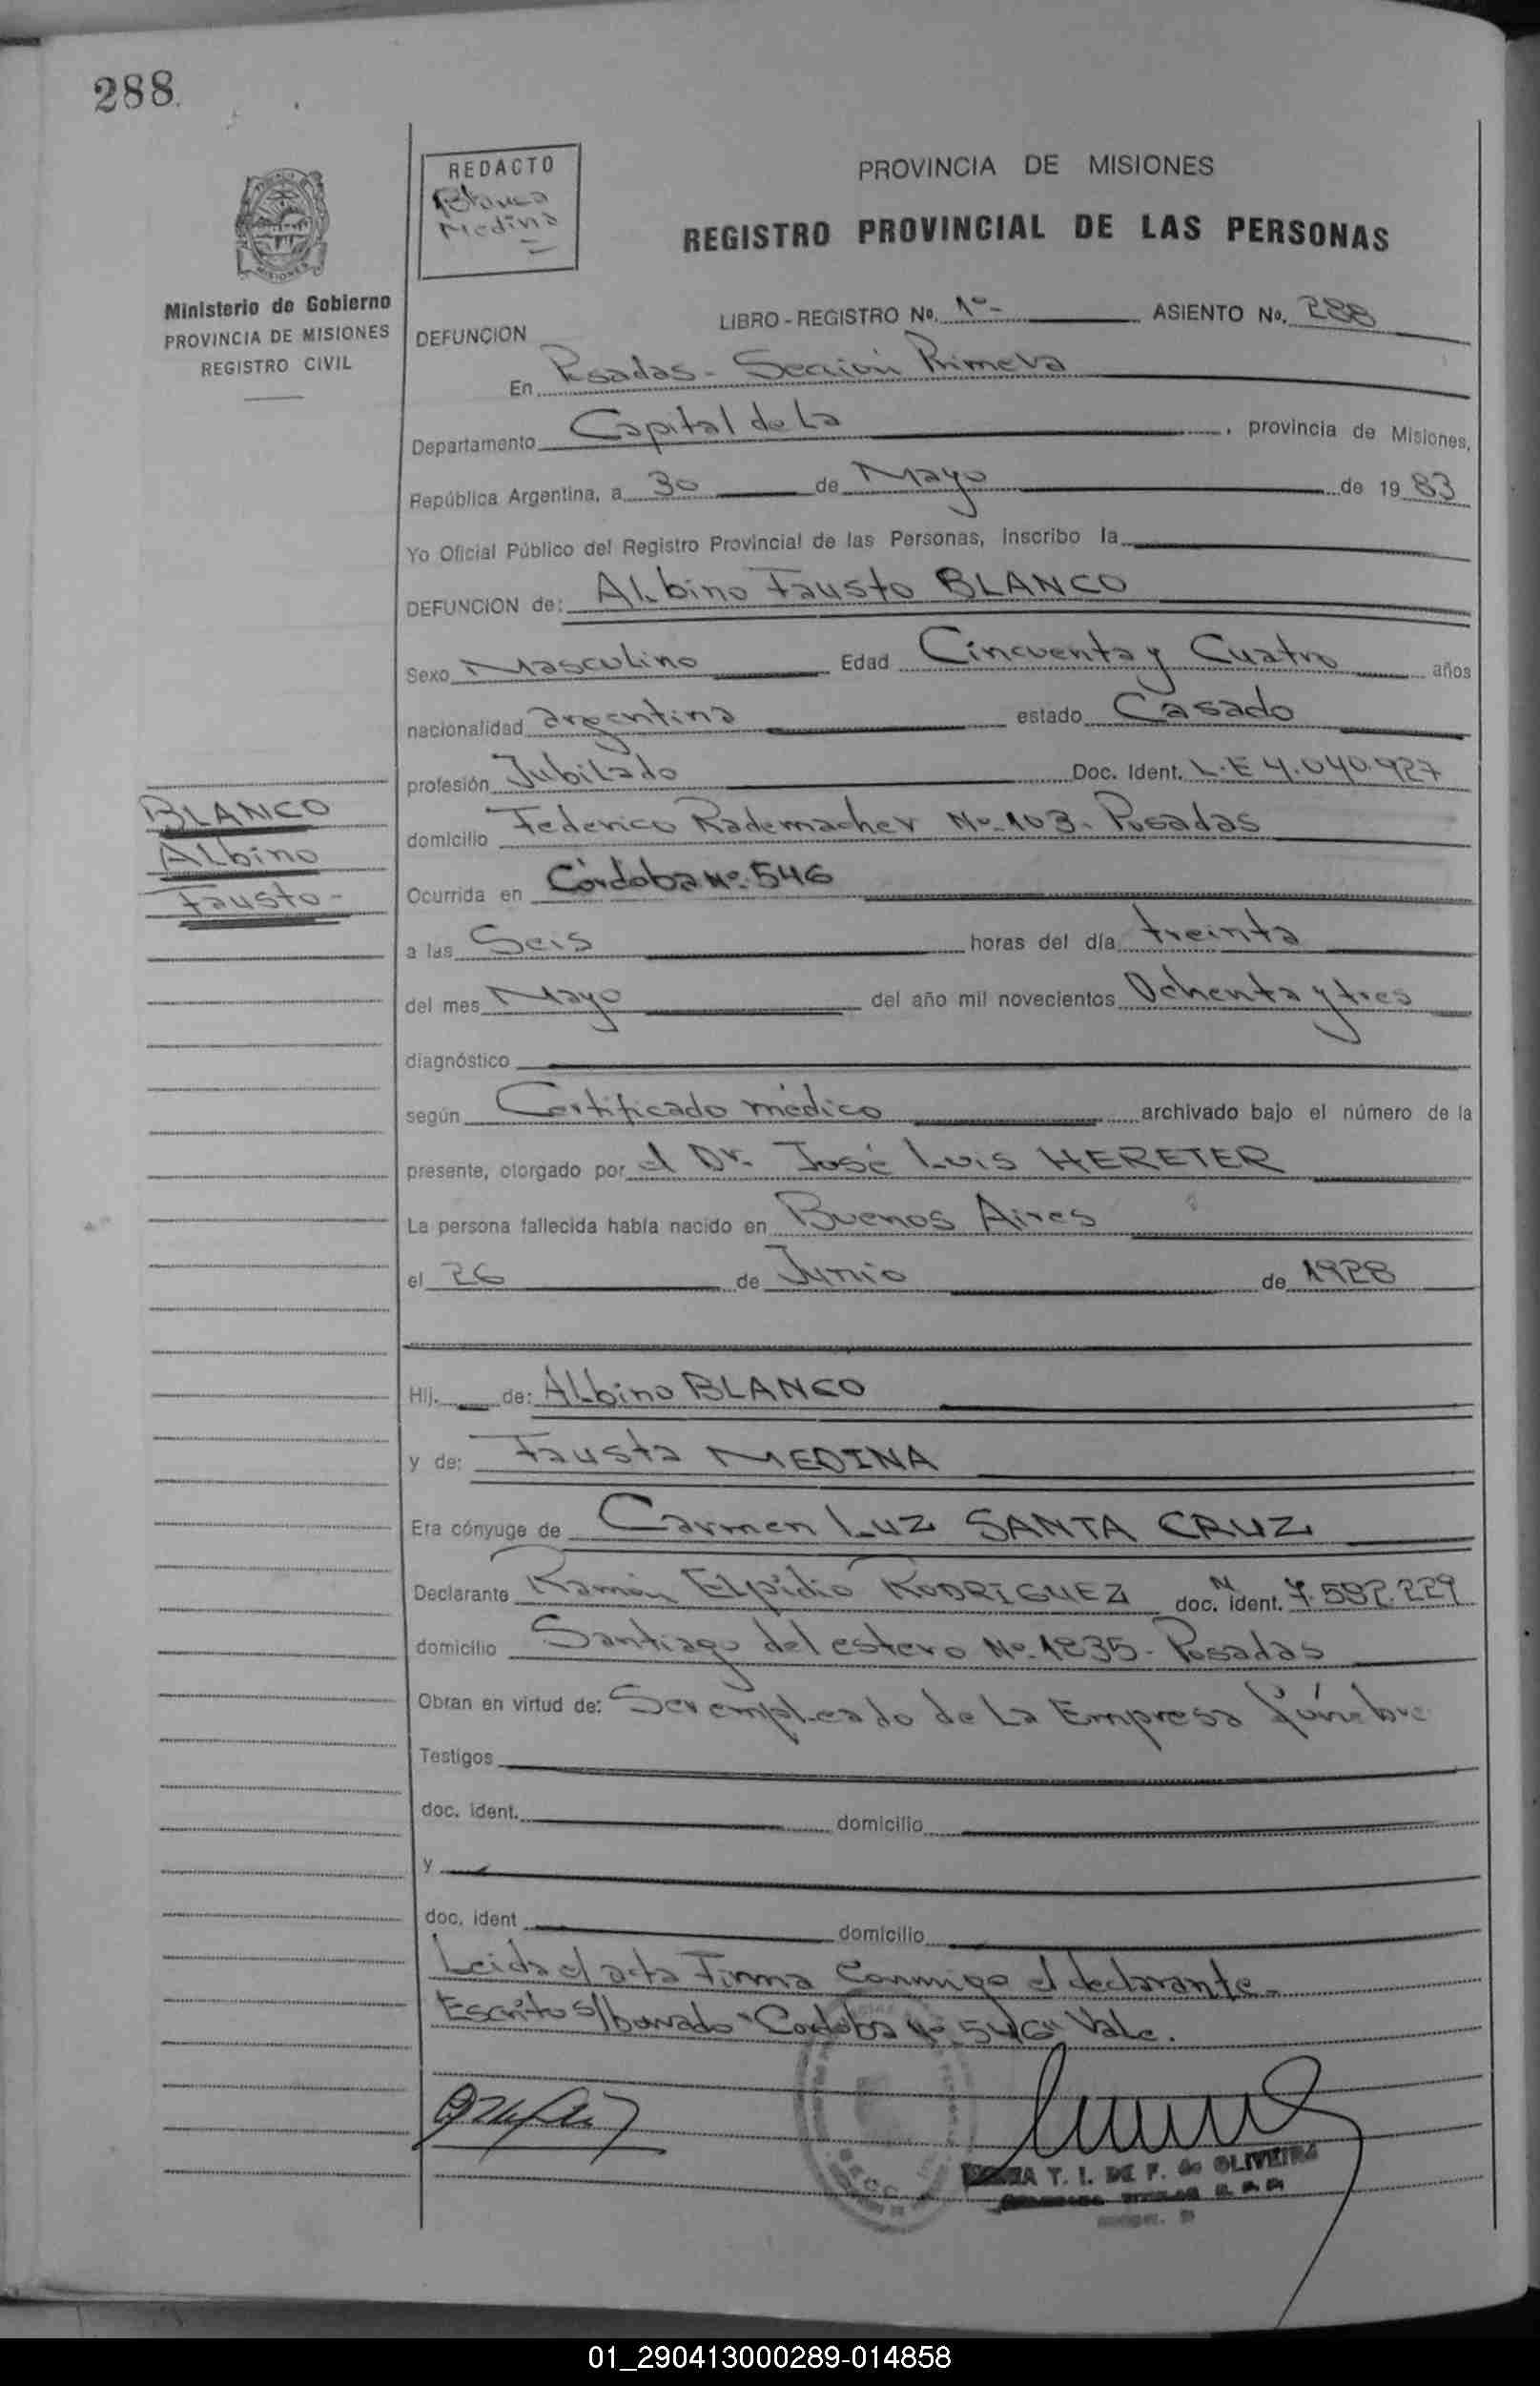 288
REDACTO
Blanca
Medina
PROVINCIA DE MISIONES
REGISTRO PROVINCIAL DE LAS PERSONAS
MISIONES
Ministerio de Gobierno
PROVINCIA DE MISIONES
REGISTRO CIVIL
LIBRO - REGISTRO Nº. 1º - ASIENTO Nº. 288
DEFUNCION
En Posadas - Sección Primera
Departamento Capital de La , provincia de Misiones,
República Argentina, a 30 de Mayo de 1983
Yo Oficial Público del Registro Provincial de las Personas, inscribo la
DEFUNCION de: Albino Fausto BLANCO
Sexo Masculino Edad Cincuenta y Cuatro años
nacionalidad argentina estado Casado
profesión Jubilado Doc. Ident. L.E 4.040.927
BLANCO
Albino
Fausto -
domicilio Federico Rademacher Nº 103. Posadas
Ocurrida en Córdoba Nº 546
a las Seis horas del día treinta
del mes Mayo del año mil novecientos Ochenta y tres
diagnóstico
según Certificado médico archivado bajo el número de la
presente, otorgado por el Dr. José Luis HERETER
La persona fallecida había nacido en Buenos Aires
el 26 de Junio de 1928
Hij. de: Albino BLANCO
y de: Fausta MEDINA
Era cónyuge de Carmen Luz SANTA CRUZ
Declarante Ramón Elpidio RODRIGUEZ doc. N ident. 7.592.229
domicilio Santiago del estero Nº 1835 - Posadas
Obran en virtud de: Ser empleado de La Empresa fúnebre
Testigos
doc. ident. domicilio
y
doc. ident domicilio
Leida el acta Firma Conmigo el declarante.
Escrito s/borrado "Cordoba Nº 546" Vale.
T. I. DE F. de OLIVEIRA
01_290413000289-014858